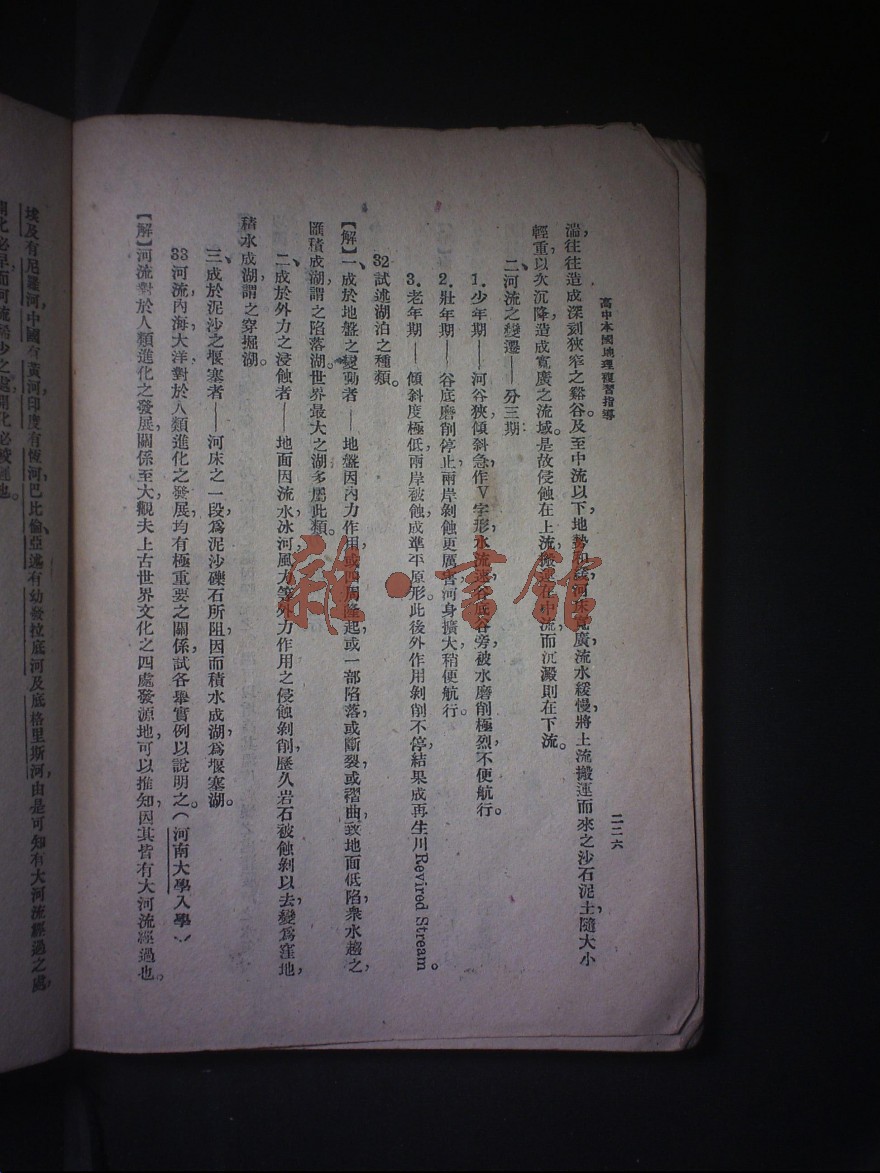 高中本國地理複習指導
二二六
湍，往往造成深刻狹窄之谿谷。及至中流以下，地勢和緩，河床寬廣，流水緩慢，將上流搬運而來之沙石泥土，隨大小
輕重以次沉降，造成寬廣之流域。是故侵蝕在上流，搬運在中流，而沉澱則在下流。
二、河流之變遷——分三期
1.少年期——河谷狹，傾斜急，作V字形，水流速，谷底谷旁被水磨削極烈，不便航行。
2.壯年期——谷底磨削停止，兩岸剝蝕更厲害，河身擴大，稍便航行。
3.老年期——傾斜度極低，兩岸被蝕，成準平原形，此後外作用剝削不停，結果成再生川Revired Stream。
32試述湖泊之種類。
【解】一、成於地盤之變動者——地盤因內力作用，或四周隆起，或一部陷落，或斷裂，或褶曲，致地面低陷，衆水趨之，
匯積成湖，謂之陷落湖。世界最大之湖多屬此類。
二、成於外力之浸蝕者——地面因流水冰河風力等外力作用之侵蝕剝削，歷久岩石被蝕剝以去，變爲窪地，
積水成湖，謂之穿掘湖。
三、成於泥沙之堰塞者——河床之一段爲泥沙礫石所阻，因而積水成湖，爲堰塞湖。
33河流、內海、大洋對於人類進化之發展，均有極重要之關係，試各舉實例以說明之。（河南大學入學）
【解】河流對於人類進化之發展，關係至大，觀夫上古世界文化之四處發源地，可以推知，因其皆有大河流經過也。
埃及有尼羅河，中國有黃河，印度有恆河，巴比倫、亞述有幼發拉底河及底格里斯河，由是可知有大河流經過之處，
開化必早，而河流稀少之處，開化必較遲也。
雜·書館